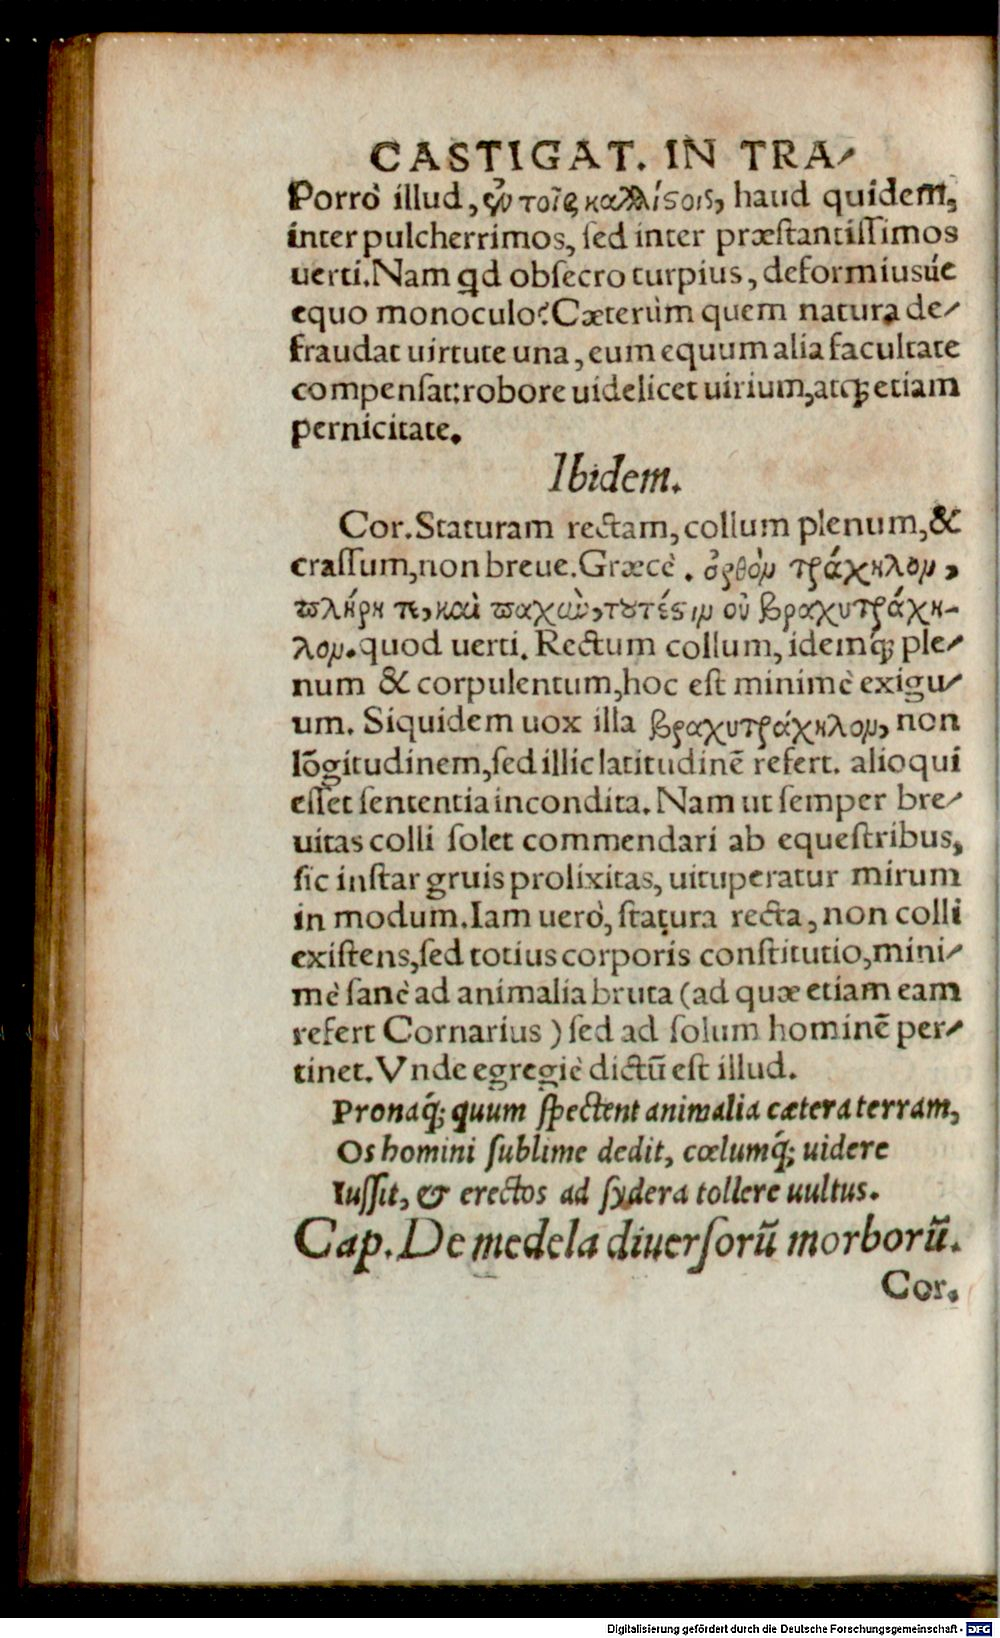 CASTIGAT. IN TRA⸗
Porrò illud, ἐν τοῖς καλλίστοις, haud quidem,
inter pulcherrimos, ſed inter præſtantiſſimos
uerti. Nam qd obſecro turpius, deformiusúe
equo monoculo? Cæterùm quem natura de⸗
fraudat uirtute una, eum equum alia facultate
compenſat: robore uidelicet uirium, atqꝫ etiam
pernicitate.
Ibidem.
Cor. Staturam rectam, collum plenum, &
craſſum, non breue. Græcè . ὀρθὸμ τράχηλομ,
πλήρη τε, καὶ παχὺν, τουτέστιμ οὐ βραχυτράχη-
λομ. quod uerti. Rectum collum, idemq́ꝫ ple⸗
num & corpulentum, hoc eſt minimè exigu⸗
um. Siquidem uox illa βραχυτράχηλομ, non
lõgitudinem, ſed illic latitudinẽ refert. alioqui
eſſet ſententia incondita. Nam ut ſemper bre⸗
uitas colli ſolet commendari ab equeſtribus,
ſic inſtar gruis prolixitas, uituperatur mirum
in modum. Iam uerò, ſtatura recta, non colli
exiſtens, ſed totius corporis conſtitutio, mini⸗
mè ſanè ad animalia bruta (ad quæ etiam eam
refert Cornarius) ſed ad ſolum hominẽ per⸗
tinet. Vnde egregiè dictũ eſt illud.
Pronaq́ꝫ quum ſpectent animalia cætera terram,
Os homini ſublime dedit, cœlumq́ꝫ uidere
Iuſſit, & erectos ad ſydera tollere uultus.
Cap. De medela diuerſorũ morborũ.
Cor.
Digitalisierung gefördert durch die Deutsche Forschungsgemeinschaft - DFG